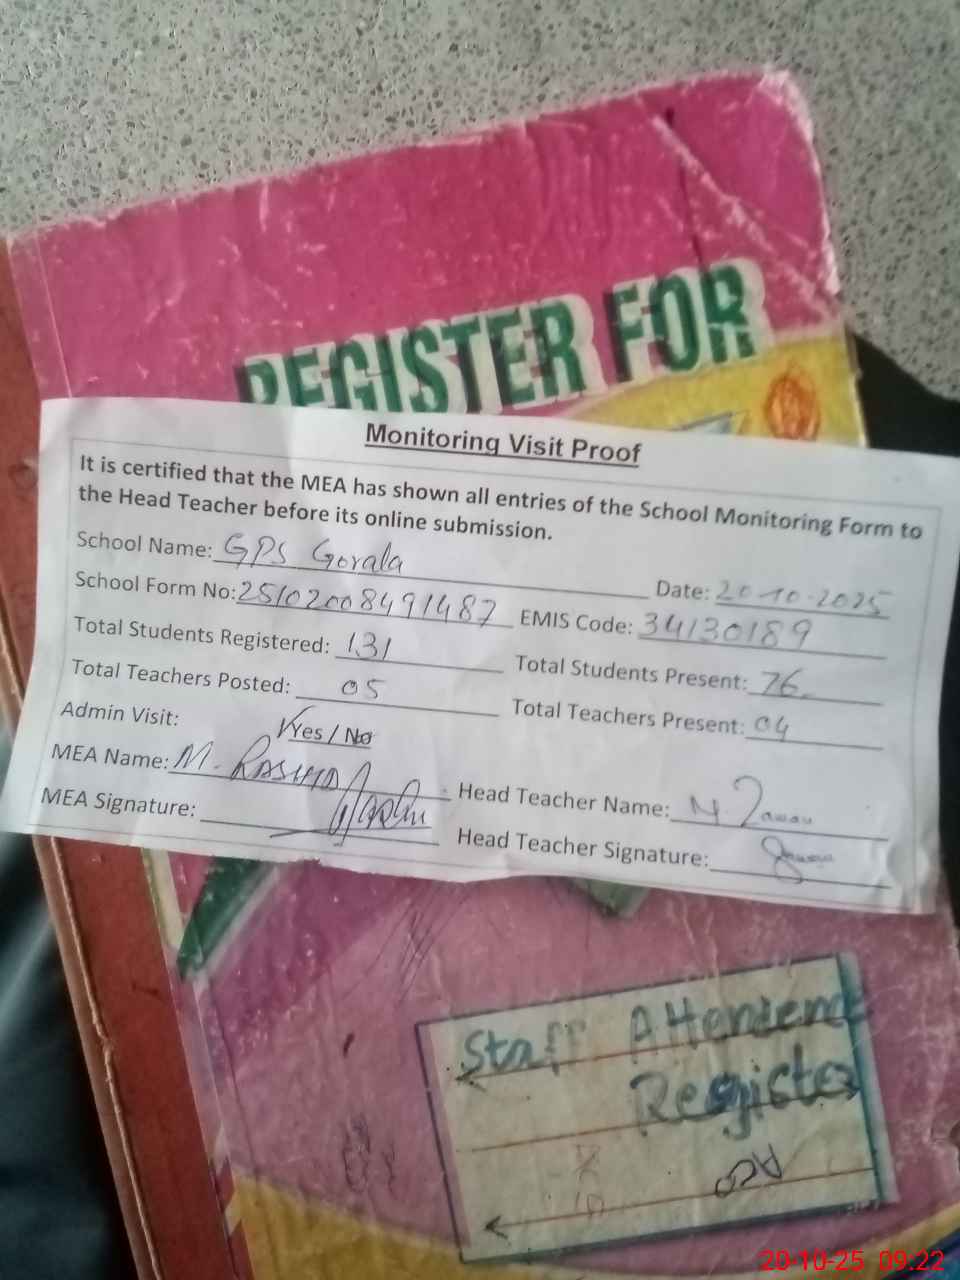 REGISTER FOR
Monitoring Visit Proof
It is certified that the MEA has shown all entries of the School Monitoring Form to
the Head Teacher before its online submission.
School Name: GPS Gorala
Date: 20-10-2025
School Form No: 25102008491487 EMIS Code: 34130189
Total Students Registered: 131 Total Students Present: 76
Total Teachers Posted: 05 Total Teachers Present: 04
Admin Visit: Yes / No
MEA Name: M. RASHID Head Teacher Name: M
MEA Signature: Head Teacher Signature:
Staff Attendenc
Register
20-10-25 09:22